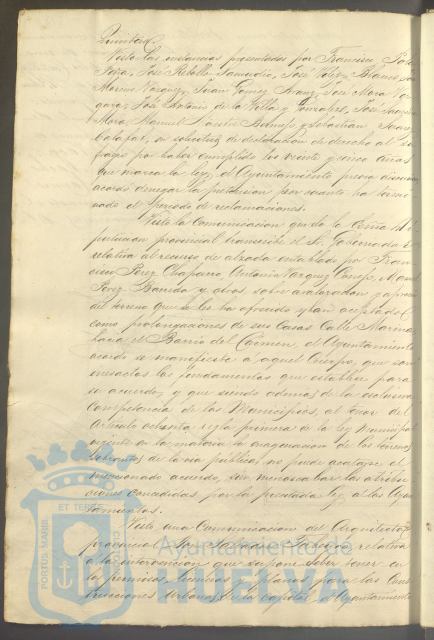 Quintero
Vistas las instancias presentadas por Francisco
José Rebollo Zamudio, José Velez Blanco,
Moreno Vazquez, Juan Gomez José Mora
José Antonio de la Villa y Gonzalez, José Joaquin
Mora, Manuel Bermejo y Sebastian Suarez
en solicitud de declaracion de derecho al su-
fragio por haber cumplido los veinte y cinco años
que marca la ley, el Ayuntamiento previa discusion
acordó denegar la pretension por cuanto ha termi-
nado el periodo de reclamaciones.
Vista la Comunicacion que de la Exma Di-
putacion provincial transcribe el Sr. Gobernador
relativa al recurso de alzada entablado por Fran-
cisco Perez Chaparro Antonio Vazquez Conejo, Manuel
Perez Barreda y otros sobre valoracion y aprecio
del terreno que se les ha ofrecido y han aceptado
como prolongaciones de sus Casas Calle Marina
hacia el Barrio del Carmen, el Ayuntamiento
acordó se manifieste a aquel Cuerpo, que son
inexactos los fundamentos que establece para
su acuerdo, y que siendo ademas de la exclusiva
Competencia de los Municipios, al tenor del
Artículo ochenta regla primera de la ley Municipal
vigente en la materia la enagenacion de los terrenos
sobrantes de la via pública, no puede acatarse el
mencionado acuerdo, sin menoscabar las atribu-
ciones concedidas por la precitada ley a los Ayun-
tamientos.
Vista una Comunicacion del Arquitecto
provincial Don relativa
a la intervencion que supone deber tener en
los permisos, licencias y planos para las Cons-
trucciones Urbanas de la capital el Ayuntamiento
PORTUS MARIS
ET TERRE
CUSTODIA
Ayuntamiento de
HUELVA